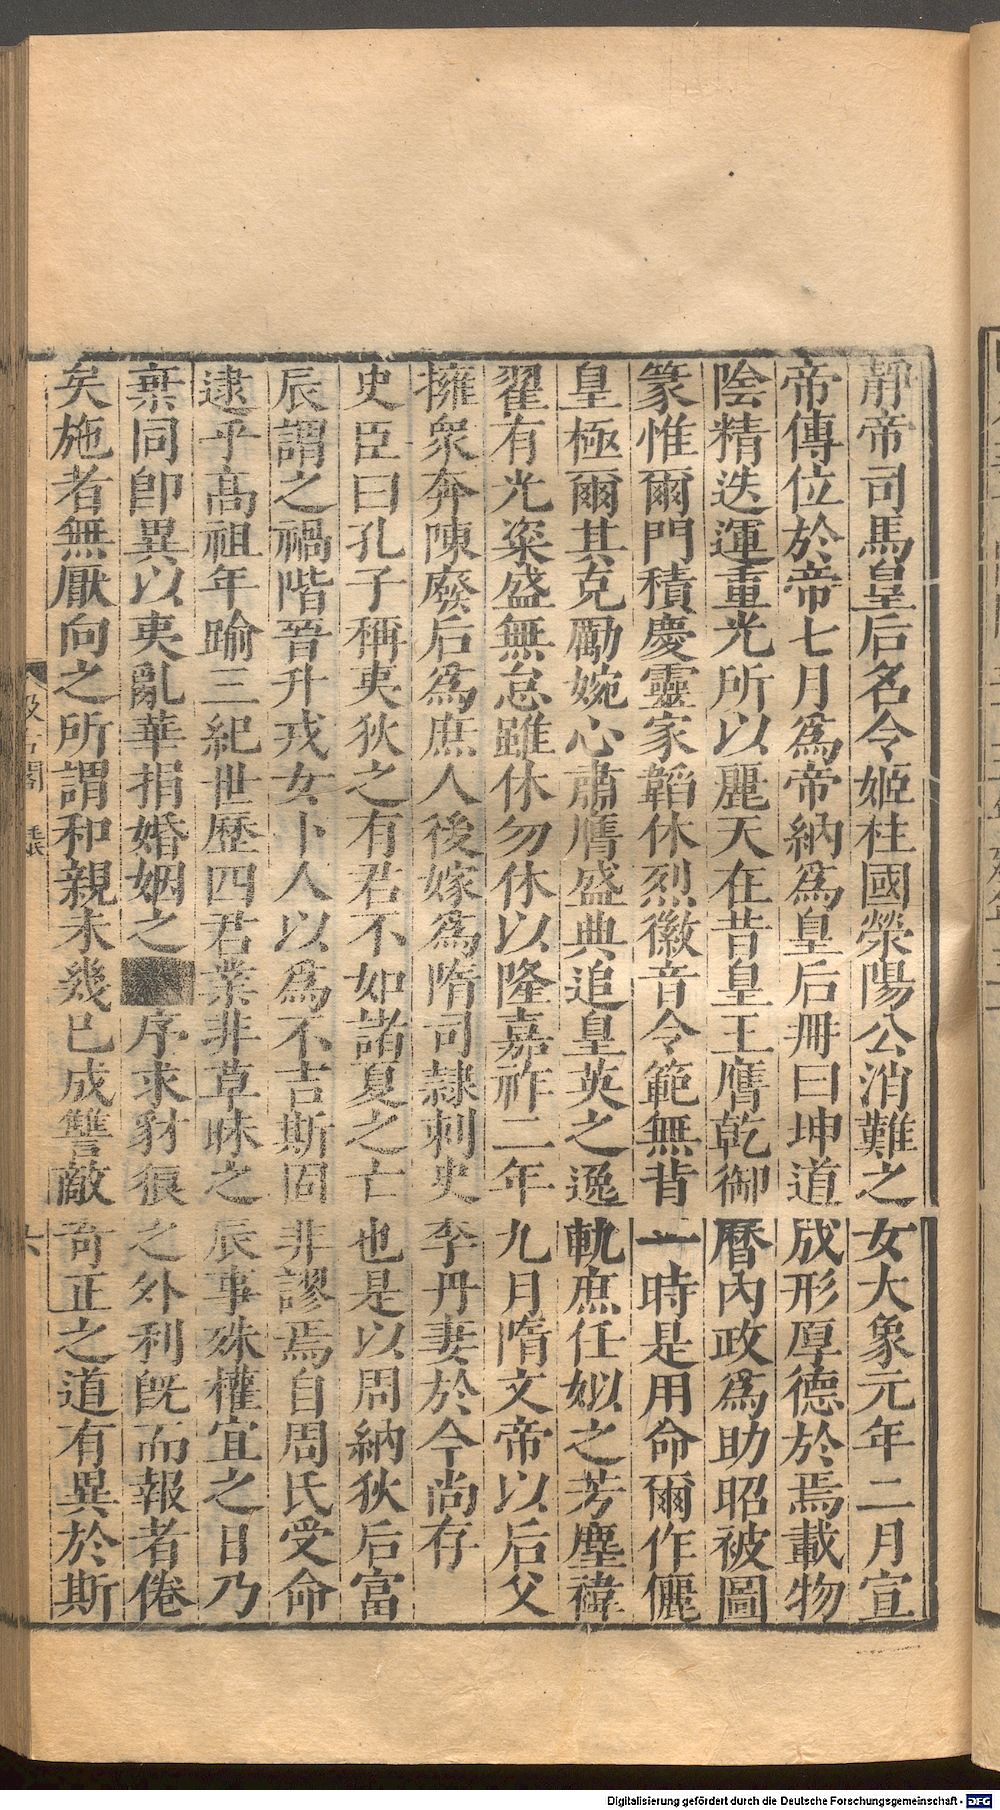 靜帝司馬皇后名令姬柱國滎陽公消難之女大象元年二月宣
帝傳位於帝七月爲帝納爲皇后冊曰坤道成形厚德於焉載物
陰精迭運重光所以麗天在昔皇王膺乾御曆內政爲助昭被圖
篆惟爾門積慶靈家韜休烈徽音令範無背一時是用命爾作儷
皇極爾其克勵婉心肅膺盛典追皇英之逸軌庶任姒之芳塵褘
翟有光粢盛無怠雖休勿休以隆嘉祚二年九月隋文帝以后父
擁衆奔陳廢后爲庶人後嫁爲隋司隸刺史李丹妻於今尚存
史臣曰孔子稱夷狄之有君不如諸夏之亡也是以周納狄后富
辰謂之禍階晉升戎女卜人以爲不吉斯固非謬焉自周氏受命
逮乎高祖年踰三紀世歷四君業非草昧之辰事殊權宜之日乃
棄同卽異以夷亂華捐婚姻之序求豺狼之外利旣而報者倦
矣施者無厭向之所謂和親未幾已成讐敵奇正之道有異於斯
Digitalisierung gefördert durch die Deutsche Forschungsgemeinschaft - DFG